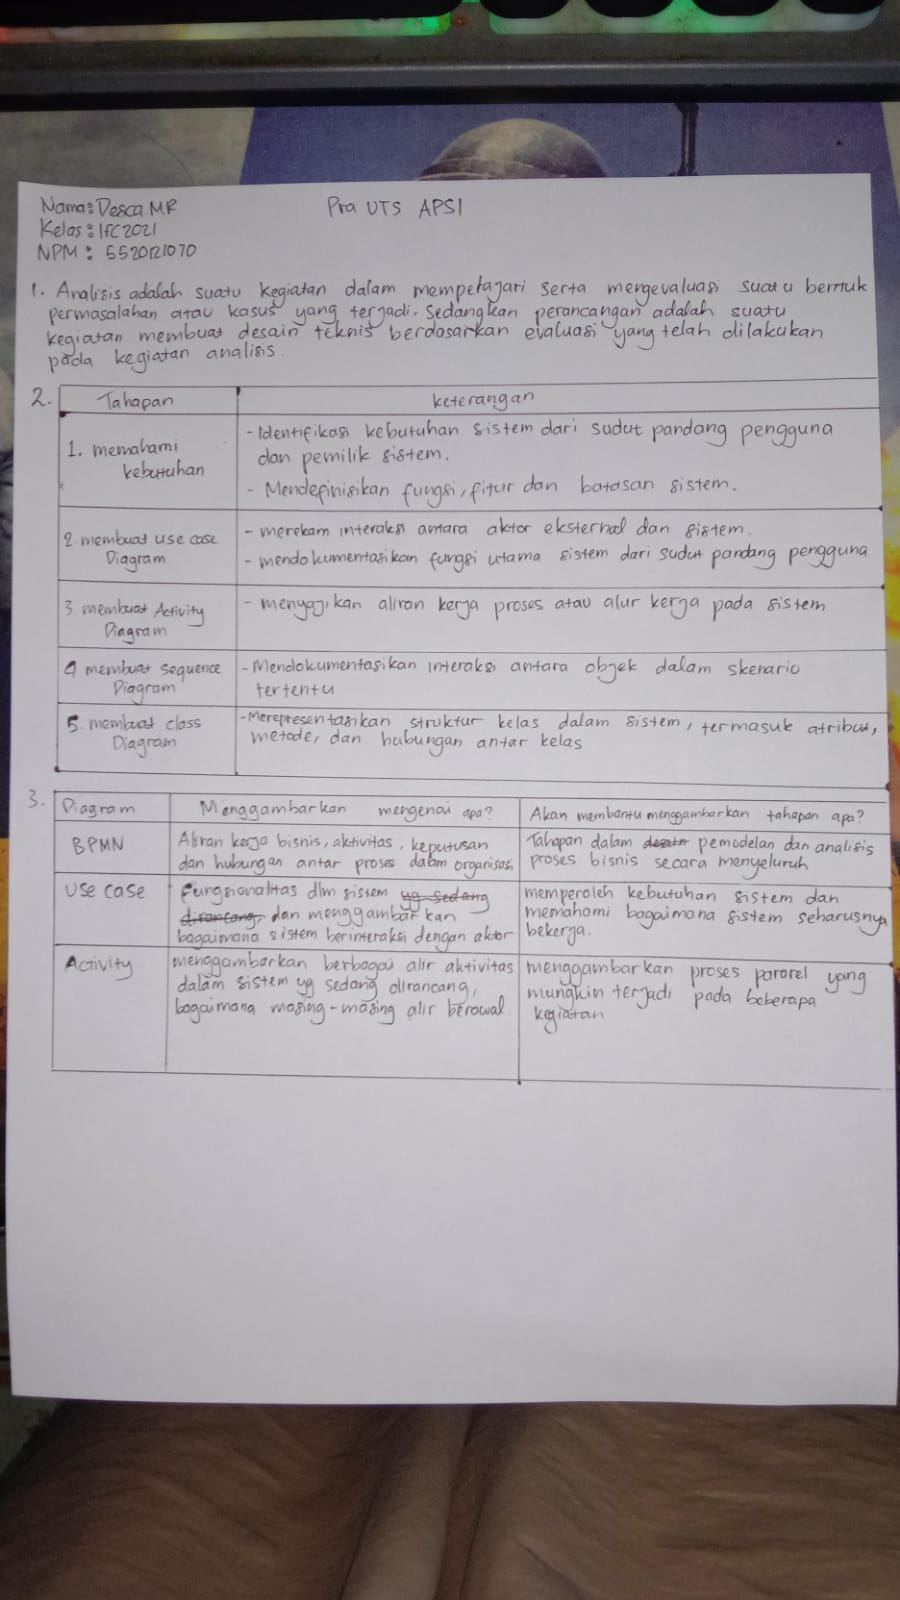 Nama: Desca M.R
Pra UTS APSI
Kelas: IFC2021
NPM: 5520121070
1. Analisis adalah suatu kegiatan dalam mempelajari serta mengevaluasi suatu bentuk
permasalahan atau kasus yang terjadi. Sedangkan perancangan adalah suatu
kegiatan membuat desain teknis berdasarkan evaluasi yang telah dilakukan
pada kegiatan analisis.
2.
Tahapan
keterangan
1. memahami
kebutuhan
- Identifikasi kebutuhan sistem dari sudut pandang pengguna
dan pemilik sistem.
- Mendefinisikan fungsi, fitur dan batasan sistem.
2. membuat use case
Diagram
- merekam interaksi antara aktor eksternal dan sistem.
- mendokumentasikan fungsi utama sistem dari sudut pandang pengguna
3. membuat Activity
Diagram
- menyajikan aliran kerja proses atau alur kerja pada sistem
4 membuat sequence
Diagram
- Mendokumentasikan interaksi antara objek dalam skenario
tertentu
5. membuat class
Diagram
- Merepresentasikan struktur kelas dalam sistem, termasuk atribut,
metode, dan hubungan antar kelas
3.
Diagram
Menggambarkan mengenai apa?
Akan membantu menggambarkan tahapan apa?
BPMN
Aliran kerja bisnis, aktivitas, keputusan
dan hubungan antar proses dalam organisasi
Tahapan dalam desain pemodelan dan analisis
proses bisnis secara menyeluruh
Use case
Fungsionalitas dlm sistem yg sedang
dirancang, dan menggambarkan
bagaimana sistem berinteraksi dengan aktor
memperoleh kebutuhan sistem dan
memahami bagaimana sistem seharusnya
bekerja.
Activity
menggambarkan berbagai alir aktivitas
dalam sistem yg sedang dirancang,
bagaimana masing-masing alir berawal.
menggambarkan proses pararel yang
mungkin terjadi pada beberapa
kegiatan